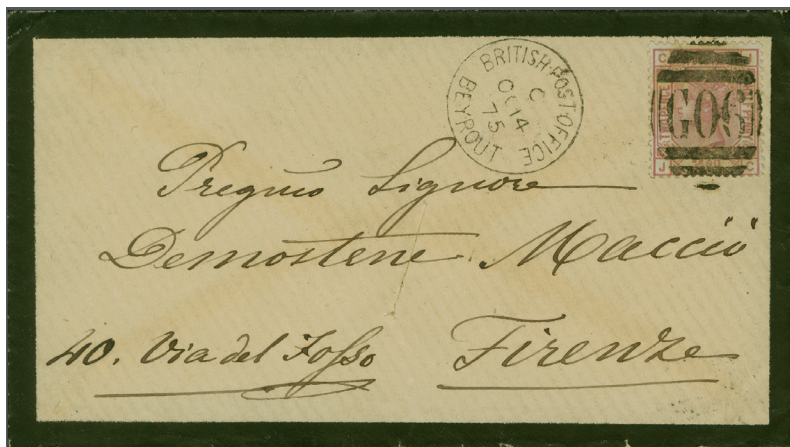 BRITISH·POST·OFFICE
BEYROUT
C
OC 14
75
G06
Pregmo Signore
Demostene Macciò
40. Via del Fosso Firenze